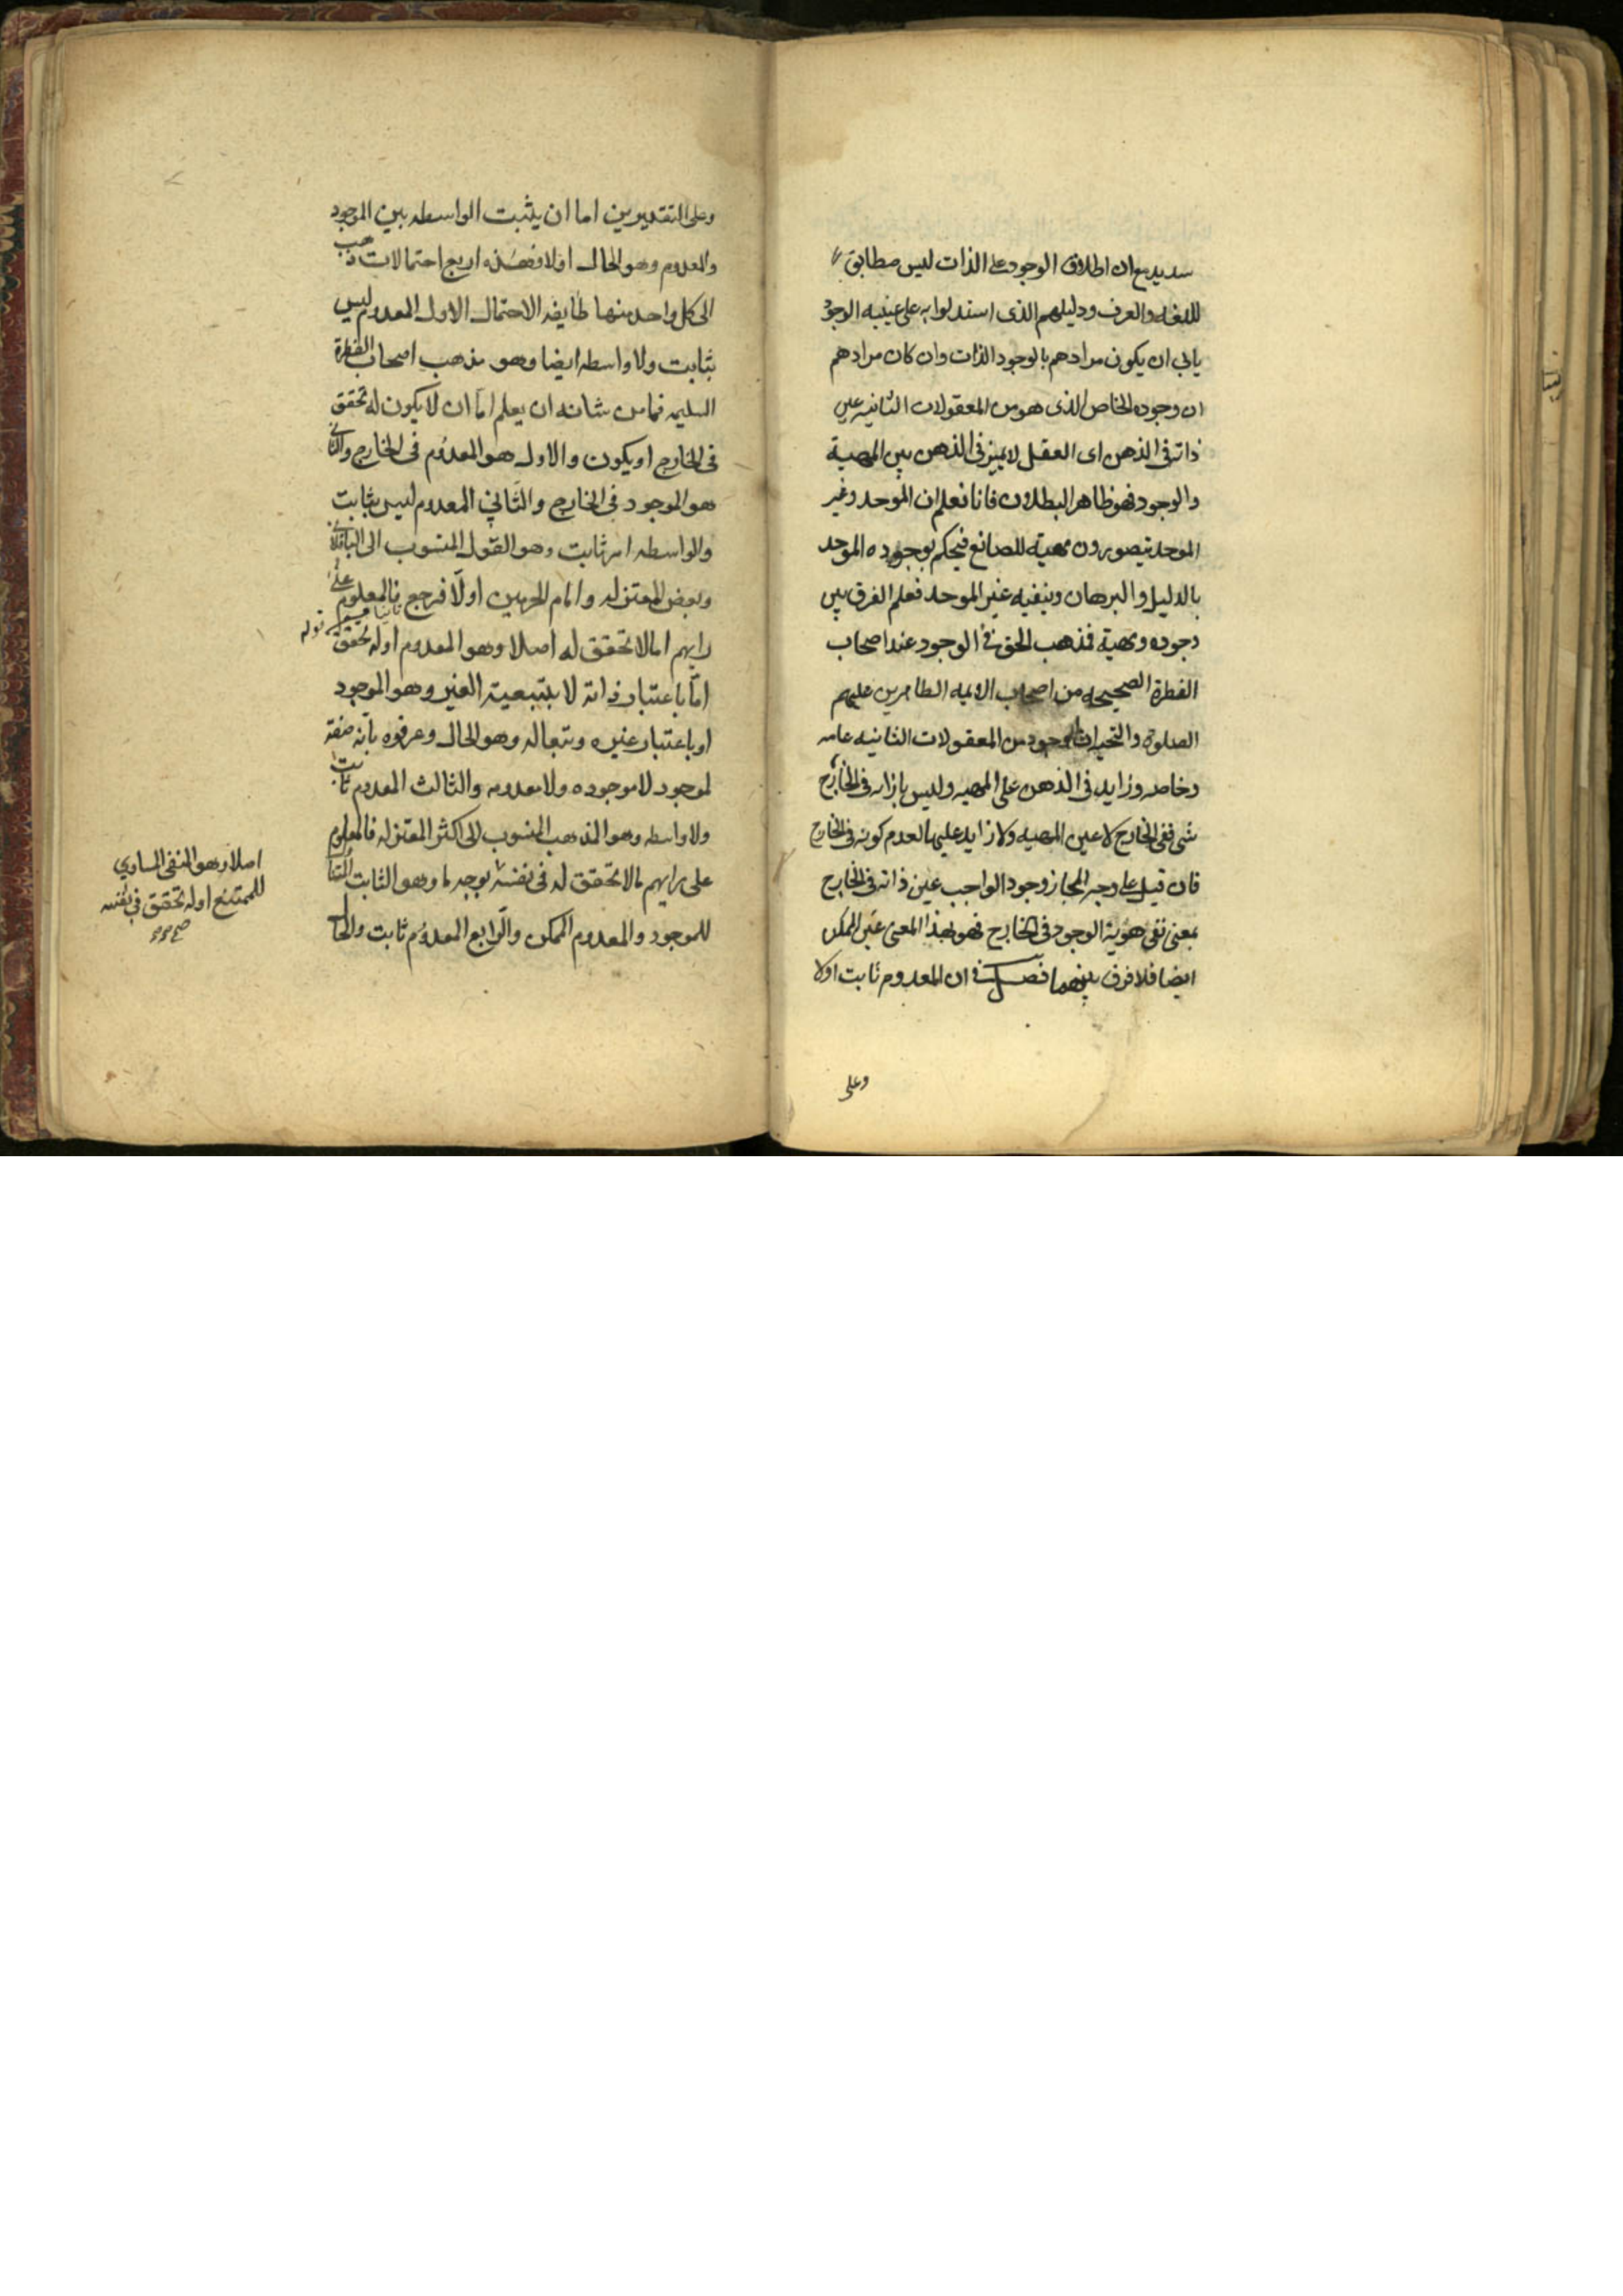 سديد مع ان اطلاق الوجود على الذات ليس مطابق
للغه والعرف ودليلهم الذى استدلوا به على عينيه الوجود
يابى ان يكون مرادهم بالوجود الذات وان كان مرادهم
ان وجوده الخاص الذى هو من المعقولات الثانيه عين
ذاته فى الذهن اى العقل لا يميز فى الذهن بين المهية
والوجود فهو ظاهر البطلان فانا نعلم ان الموحد وغير
الموحد يتصورون مهية للصانع فيحكم بوجوده الموحد
بالدليل والبرهان وينفيه غير الموحد فعلم الفرق بين
وجوده ومهية فمذهب الحق فى الوجود عند اصحاب
الفطرة الصحيحه من اصحاب الائمه الطاهرين عليهم
الصلوة والتحيات الوجود من المعقولات الثانيه عامه
وخاصه وزايد فى الذهن على المهيه وليس بازائه فى الخارج
شى ففى الخارج لا عين المهيه ولا زايد عليها لعدم كونه فى الخارج
فان قيل على وجه المجاز وجود الواجب عين ذاته فى الخارج
بمعنى نفى هوية الوجود فى الخارج فهو بهذا المعنى عين الممكن
ايضا فلا فرق بينهما فصل فى ان المعدوم ثابت اولا
وعلى
وعلى التقديرين اما ان يثبت الواسطه بين الموجود
والمعدوم وهو الحال اولا فهذه اربع احتمالات ذهب
الى كل واحد منها طايفه الاحتمال الاول المعدوم ليس
بثابت ولا واسطه ايضا وهو مذهب اصحاب الفطرة
السليمه فما من شانه ان يعلم اما ان لا يكون له تحقق
فى الخارج او يكون والاول هو المعدوم فى الخارج والثانى
هو الموجود فى الخارج والثانى المعدوم ليس بثابت
والواسطه امر ثابت وهو القول المنسوب الى الباقلانى
وبعض المعتزله وامام الحرمين اولا فرجع ثانيا فالمعلوم على
رايهم اما لا تحقق له اصلا وهو المعدوم اوله تحقق
اما باعتبار ذاته لا بتبعية الغير وهو الموجود
او باعتبار غيره وتبعا له وهو الحال وعرفوه بانه صفة
لموجود لا موجوده ولا معدومه والثالث المعدوم ثابت
ولا واسطه وهو المذهب المنسوب الى اكثر المعتزله فالمعلوم
على رايهم مالا تحقق له فى نفسه بوجه ما وهو الثابت
للموجود والمعدوم الممكن والرابع المعدوم ثابت والحال
اصلا وهو المنفى المساوي
للممتنع اوله تحقق فى نفسه
صح